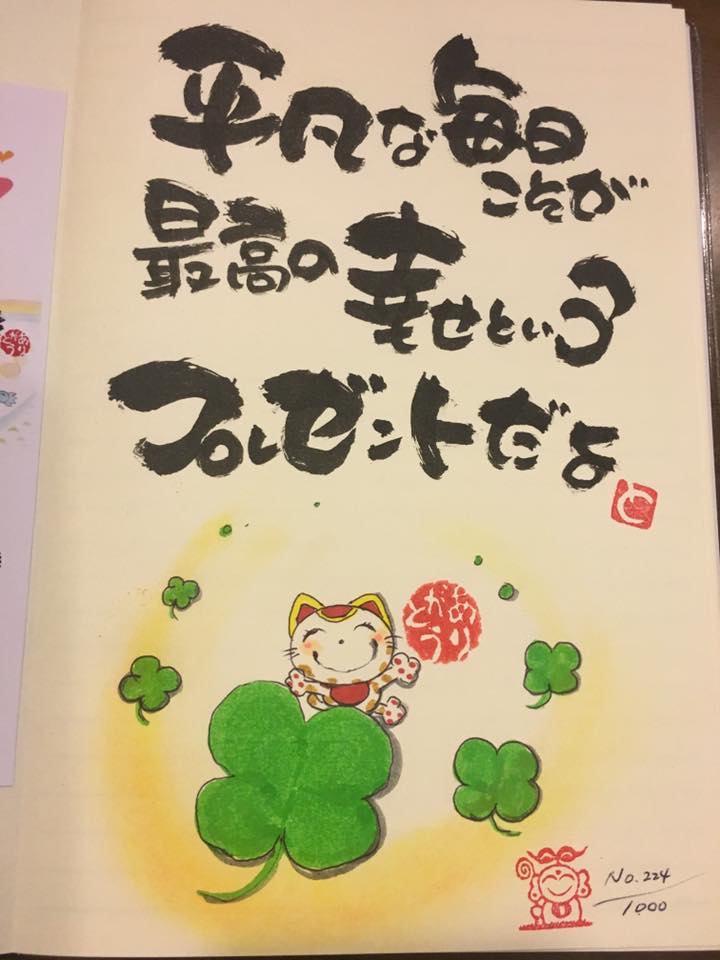 平凡な毎日
こそが
最高の幸せという
プレゼントだよ
と
ありがとう
No.224
1000